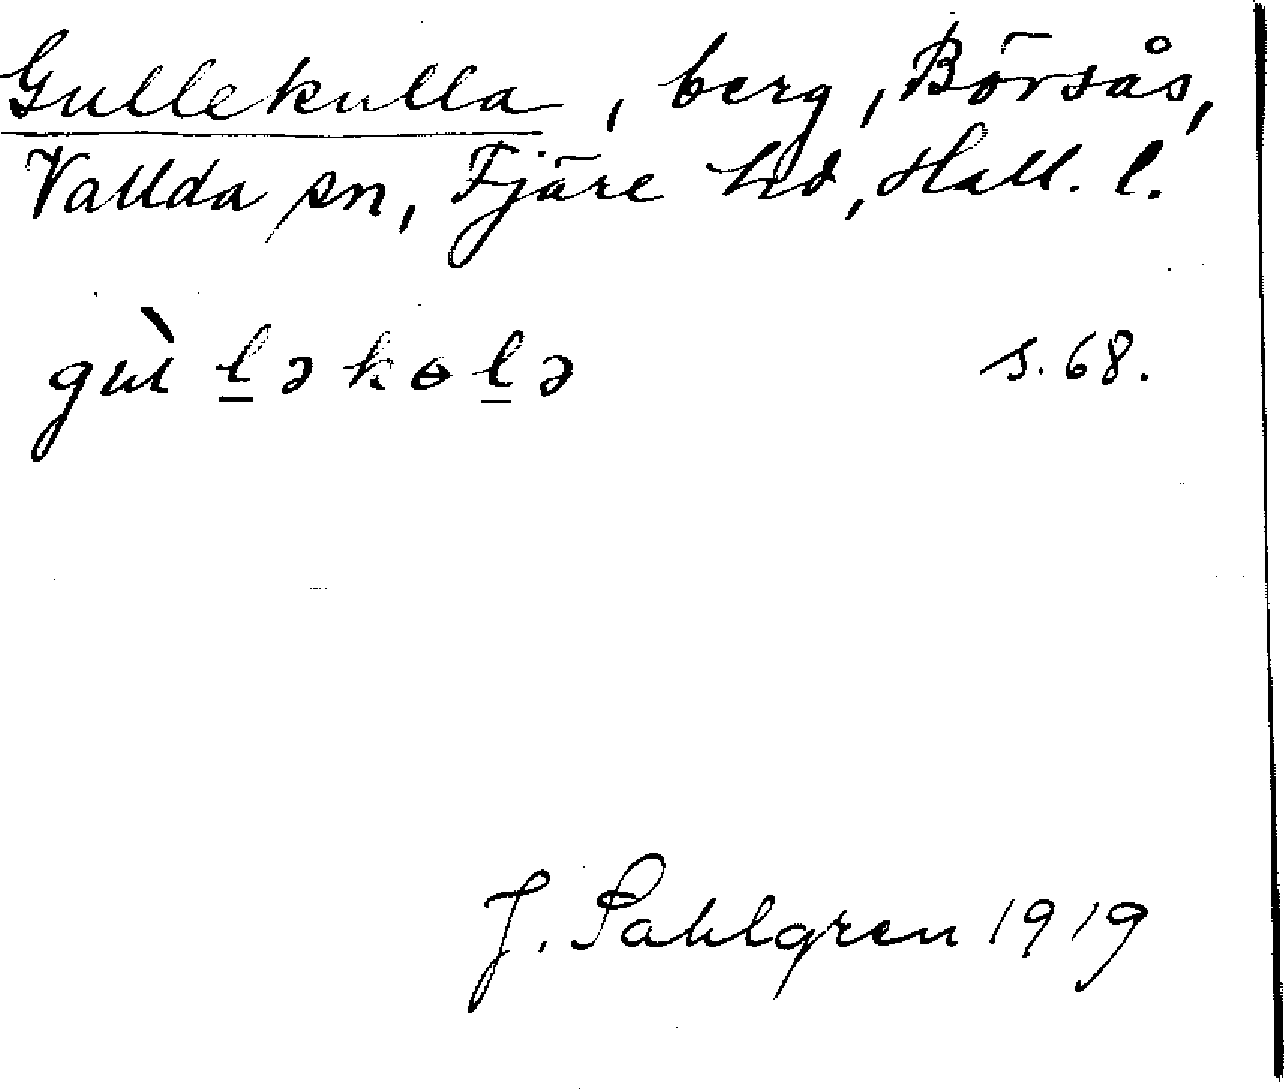 Gullekulla, berg, Börsås,
Vallda sn, Fjäre hd, Hall. l.
gɯ̀l̲əkɵl̲ə s. 68.
J. Sahlgren 1919